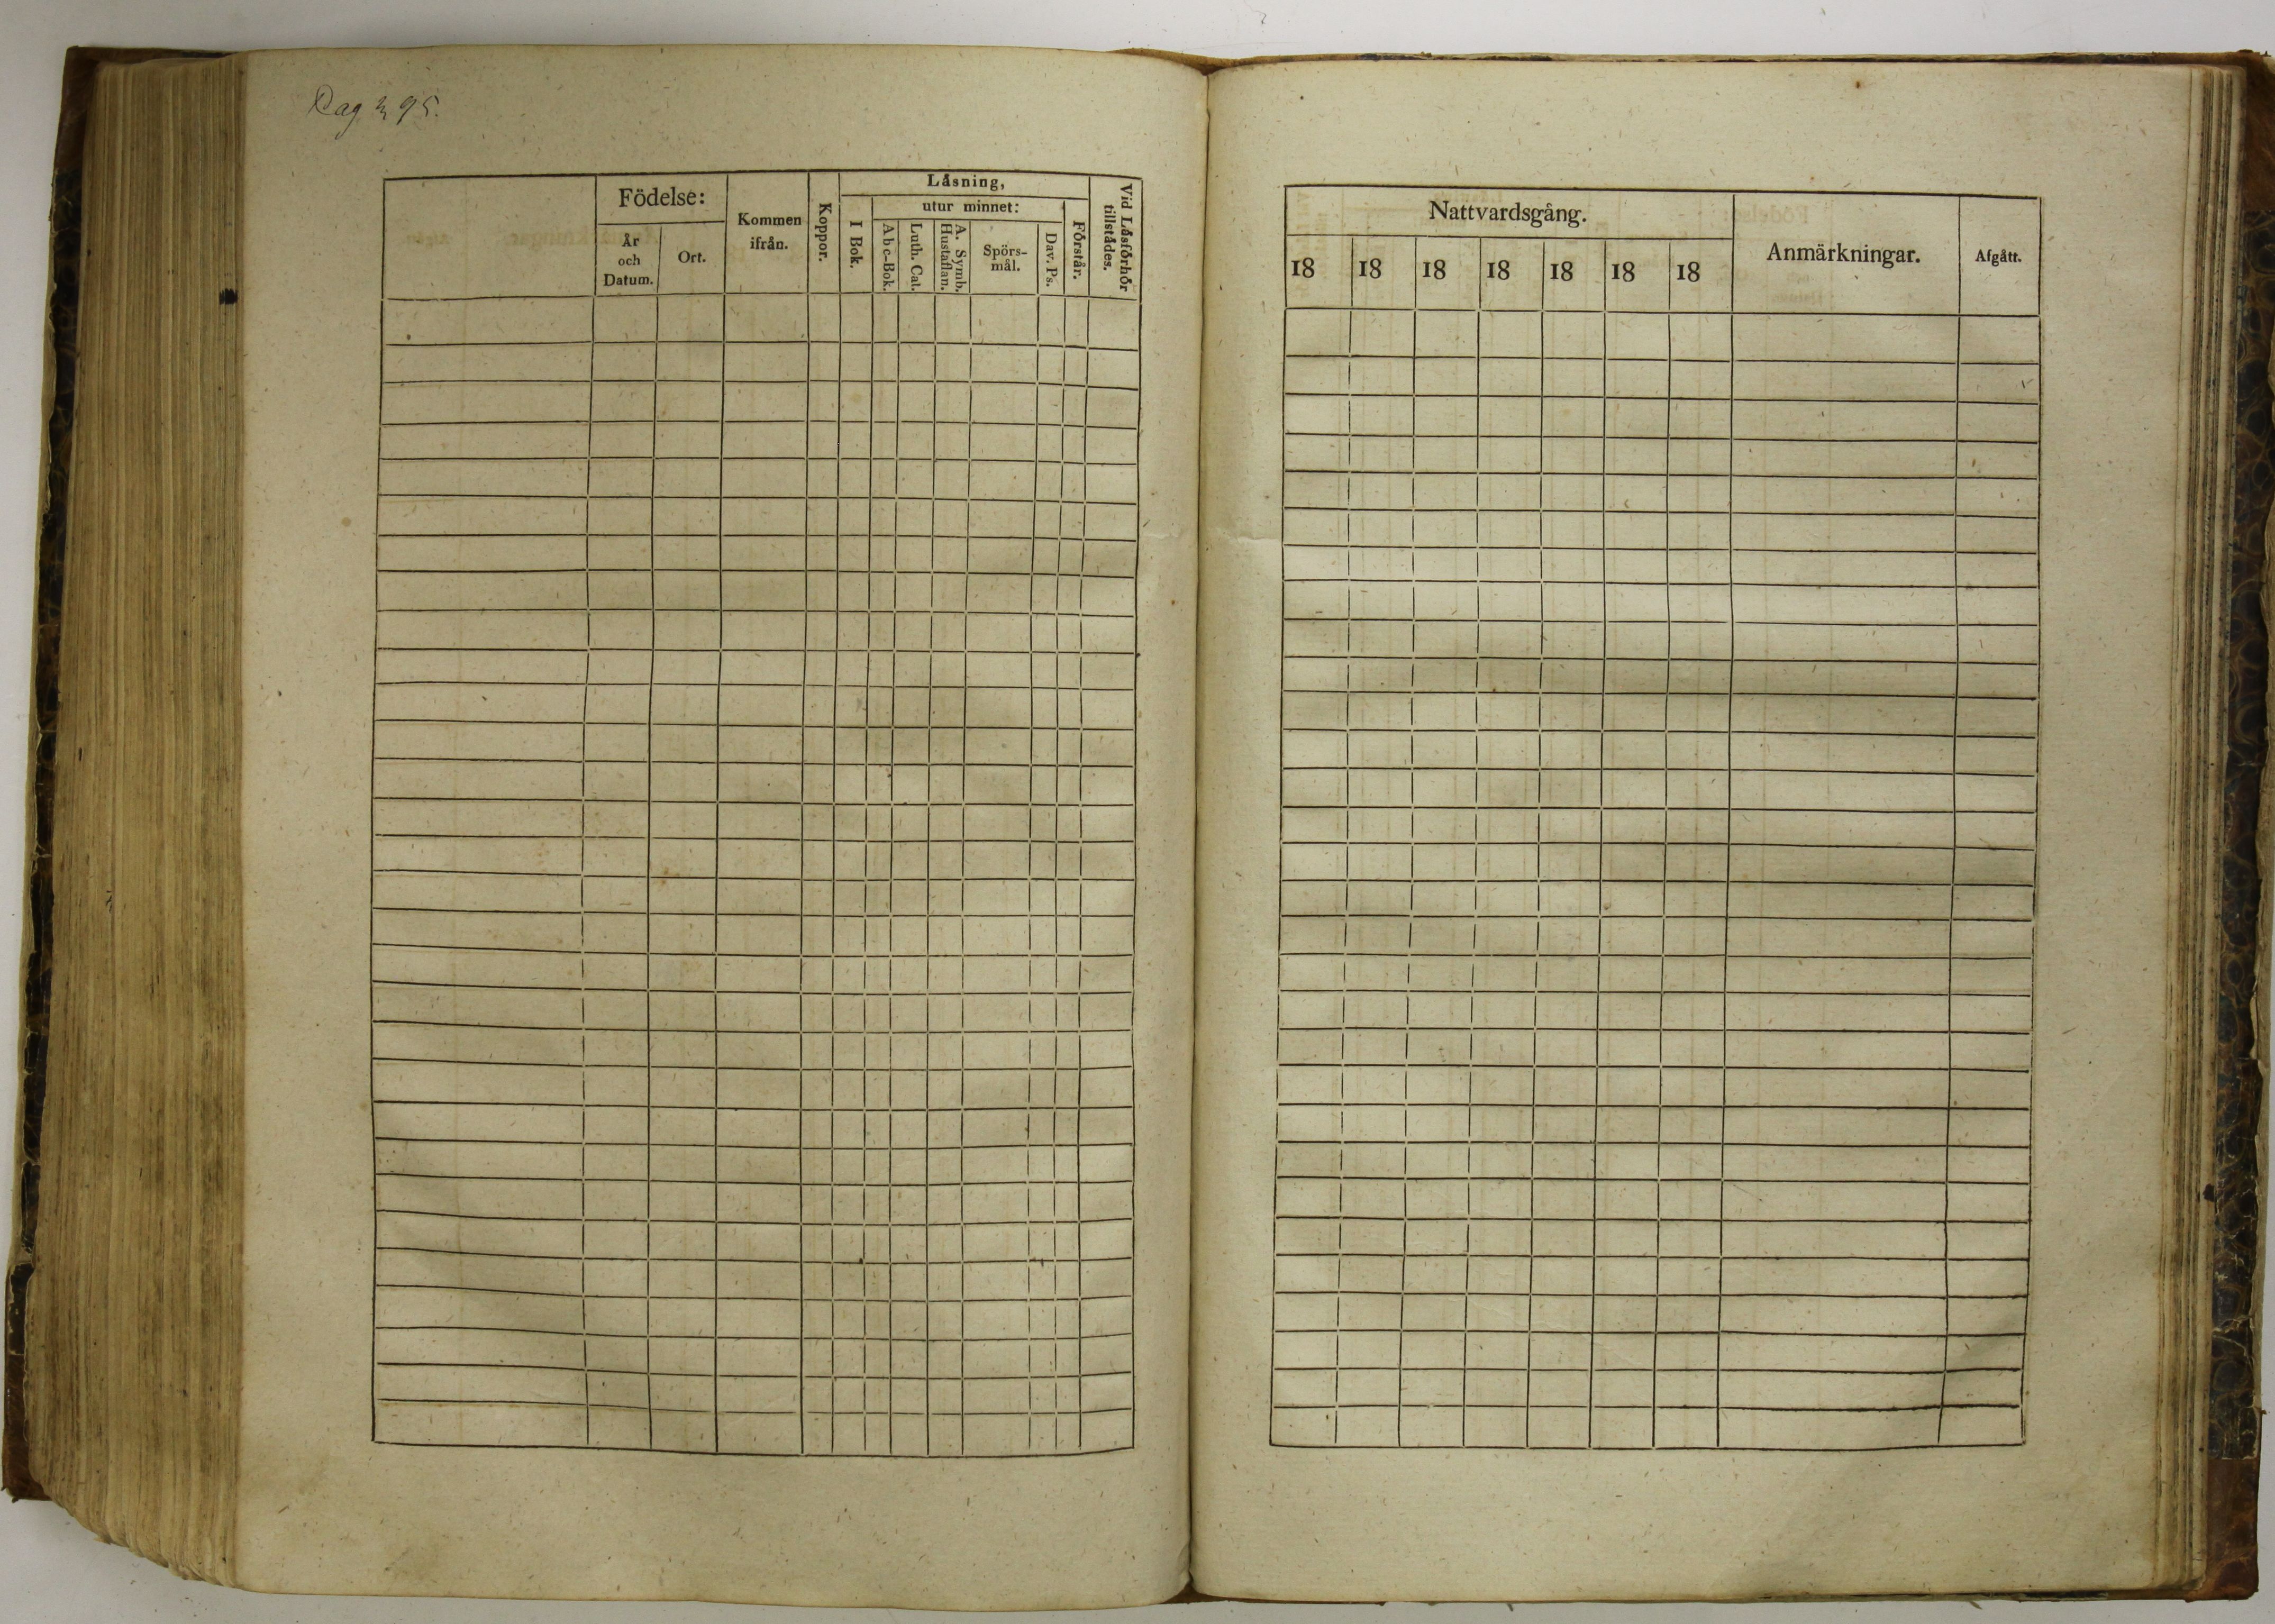 Pag 395.
Födelse:
År
och
Datum.
Ort.
Kommen
ifrån.
Koppor.
Läsning,
I Bok.
utur minnet:
Abc-Bok.
Luth. Cat.
A. Symb.
Hustaflan.
Spörs-
mål.
Dav. Ps.
Förstår.
Vid Läsförhör
tillstädes.
Nattvardsgång.
18 18 18 18 18 18 18
Anmärkningar.
Afgått.